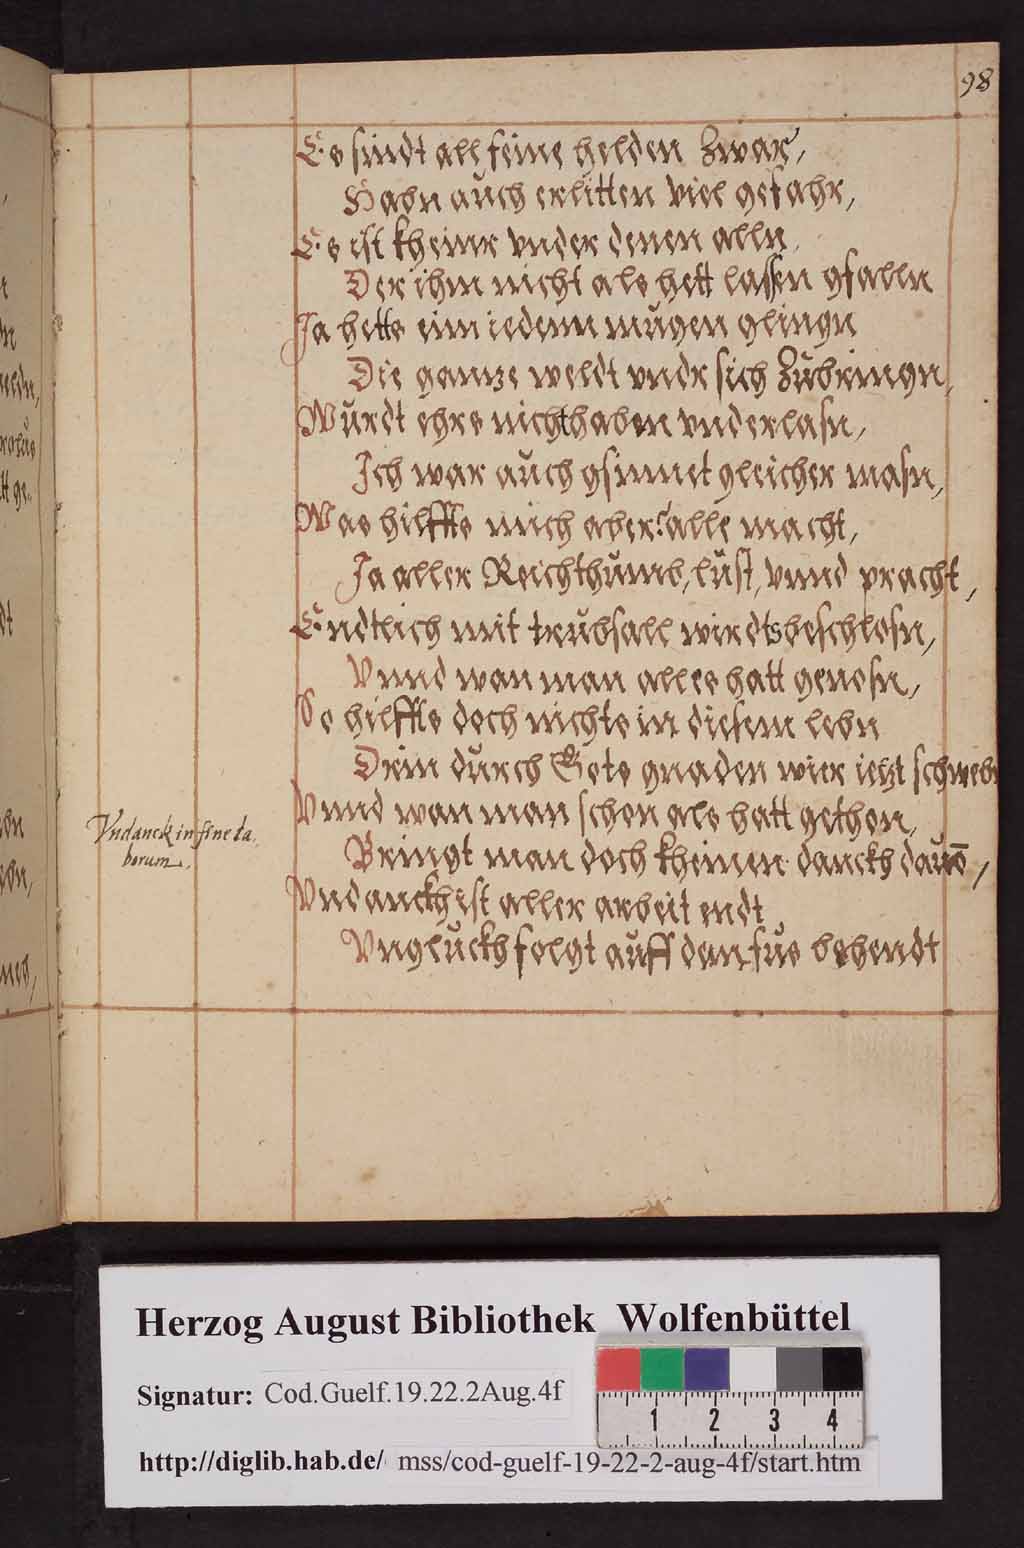 98
Es sindt all feine helden Zwar,
Habn auch erlitten viel gefahr,
Es ist kheinr vnder denen alln,
Der ihm nicht als hett lassen gfalln
Ja hetts eim iedenn mügen glingn
Die ganze weldt vndr sich Zübringn,
Würdt ehrs nicht haben vnderlasn,
Ich war auch gsinnet gleicher masn,
Was hilffts mich aber? alle macht,
Ja aller Reichthumb, lust, vnnd pracht,
Endtlich mit trübsall wirdts beschlosn,
Vnnd wan man alles hatt genosn,
So hilffts doch nichts in diesem lebn
Drin durch Gots gnaden wier ietzt schwebn
Vnnd wan man schon als hatt gethon,
Bringt man doch kheinen danckh dauō,
Vndanckh ist aller arbeit endt
Vnglückh folgt auff dem fus behendt
Vndanck in fine la,
borum.
Herzog August Bibliothek Wolfenbüttel
Signatur: Cod.Guelf.19.22.2Aug.4f
1 2 3 4
http://diglib.hab.de/ mss/cod-guelf-19-22-2-aug-4f/start.htm